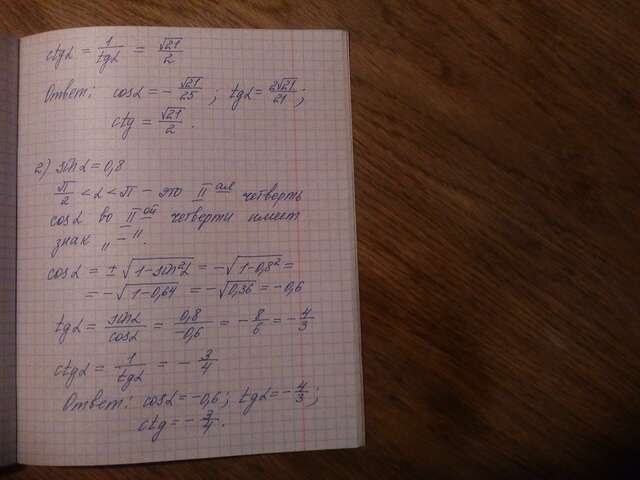 ctgα = 1/tgα = √21/2
Ответ: cosα = - √21/25 ; tgα = 2√21/21 ;
ctg = √21/2 .
2) sinα = 0,8
π/2 < α < π - это II ая четверть
cosα во II ой четверти имеет
знак „ - ".
cosα = ± √(1-sin²α) = -√(1-0,8²) =
= -√(1-0,64) = -√0,36 = -0,6
tgα = sinα/cosα = 0,8/-0,6 = - 8/6 = - 4/3
ctgα = 1/tgα = - 3/4
Ответ: cosα = -0,6 ; tgα = - 4/3 ;
ctg = - 3/4 .